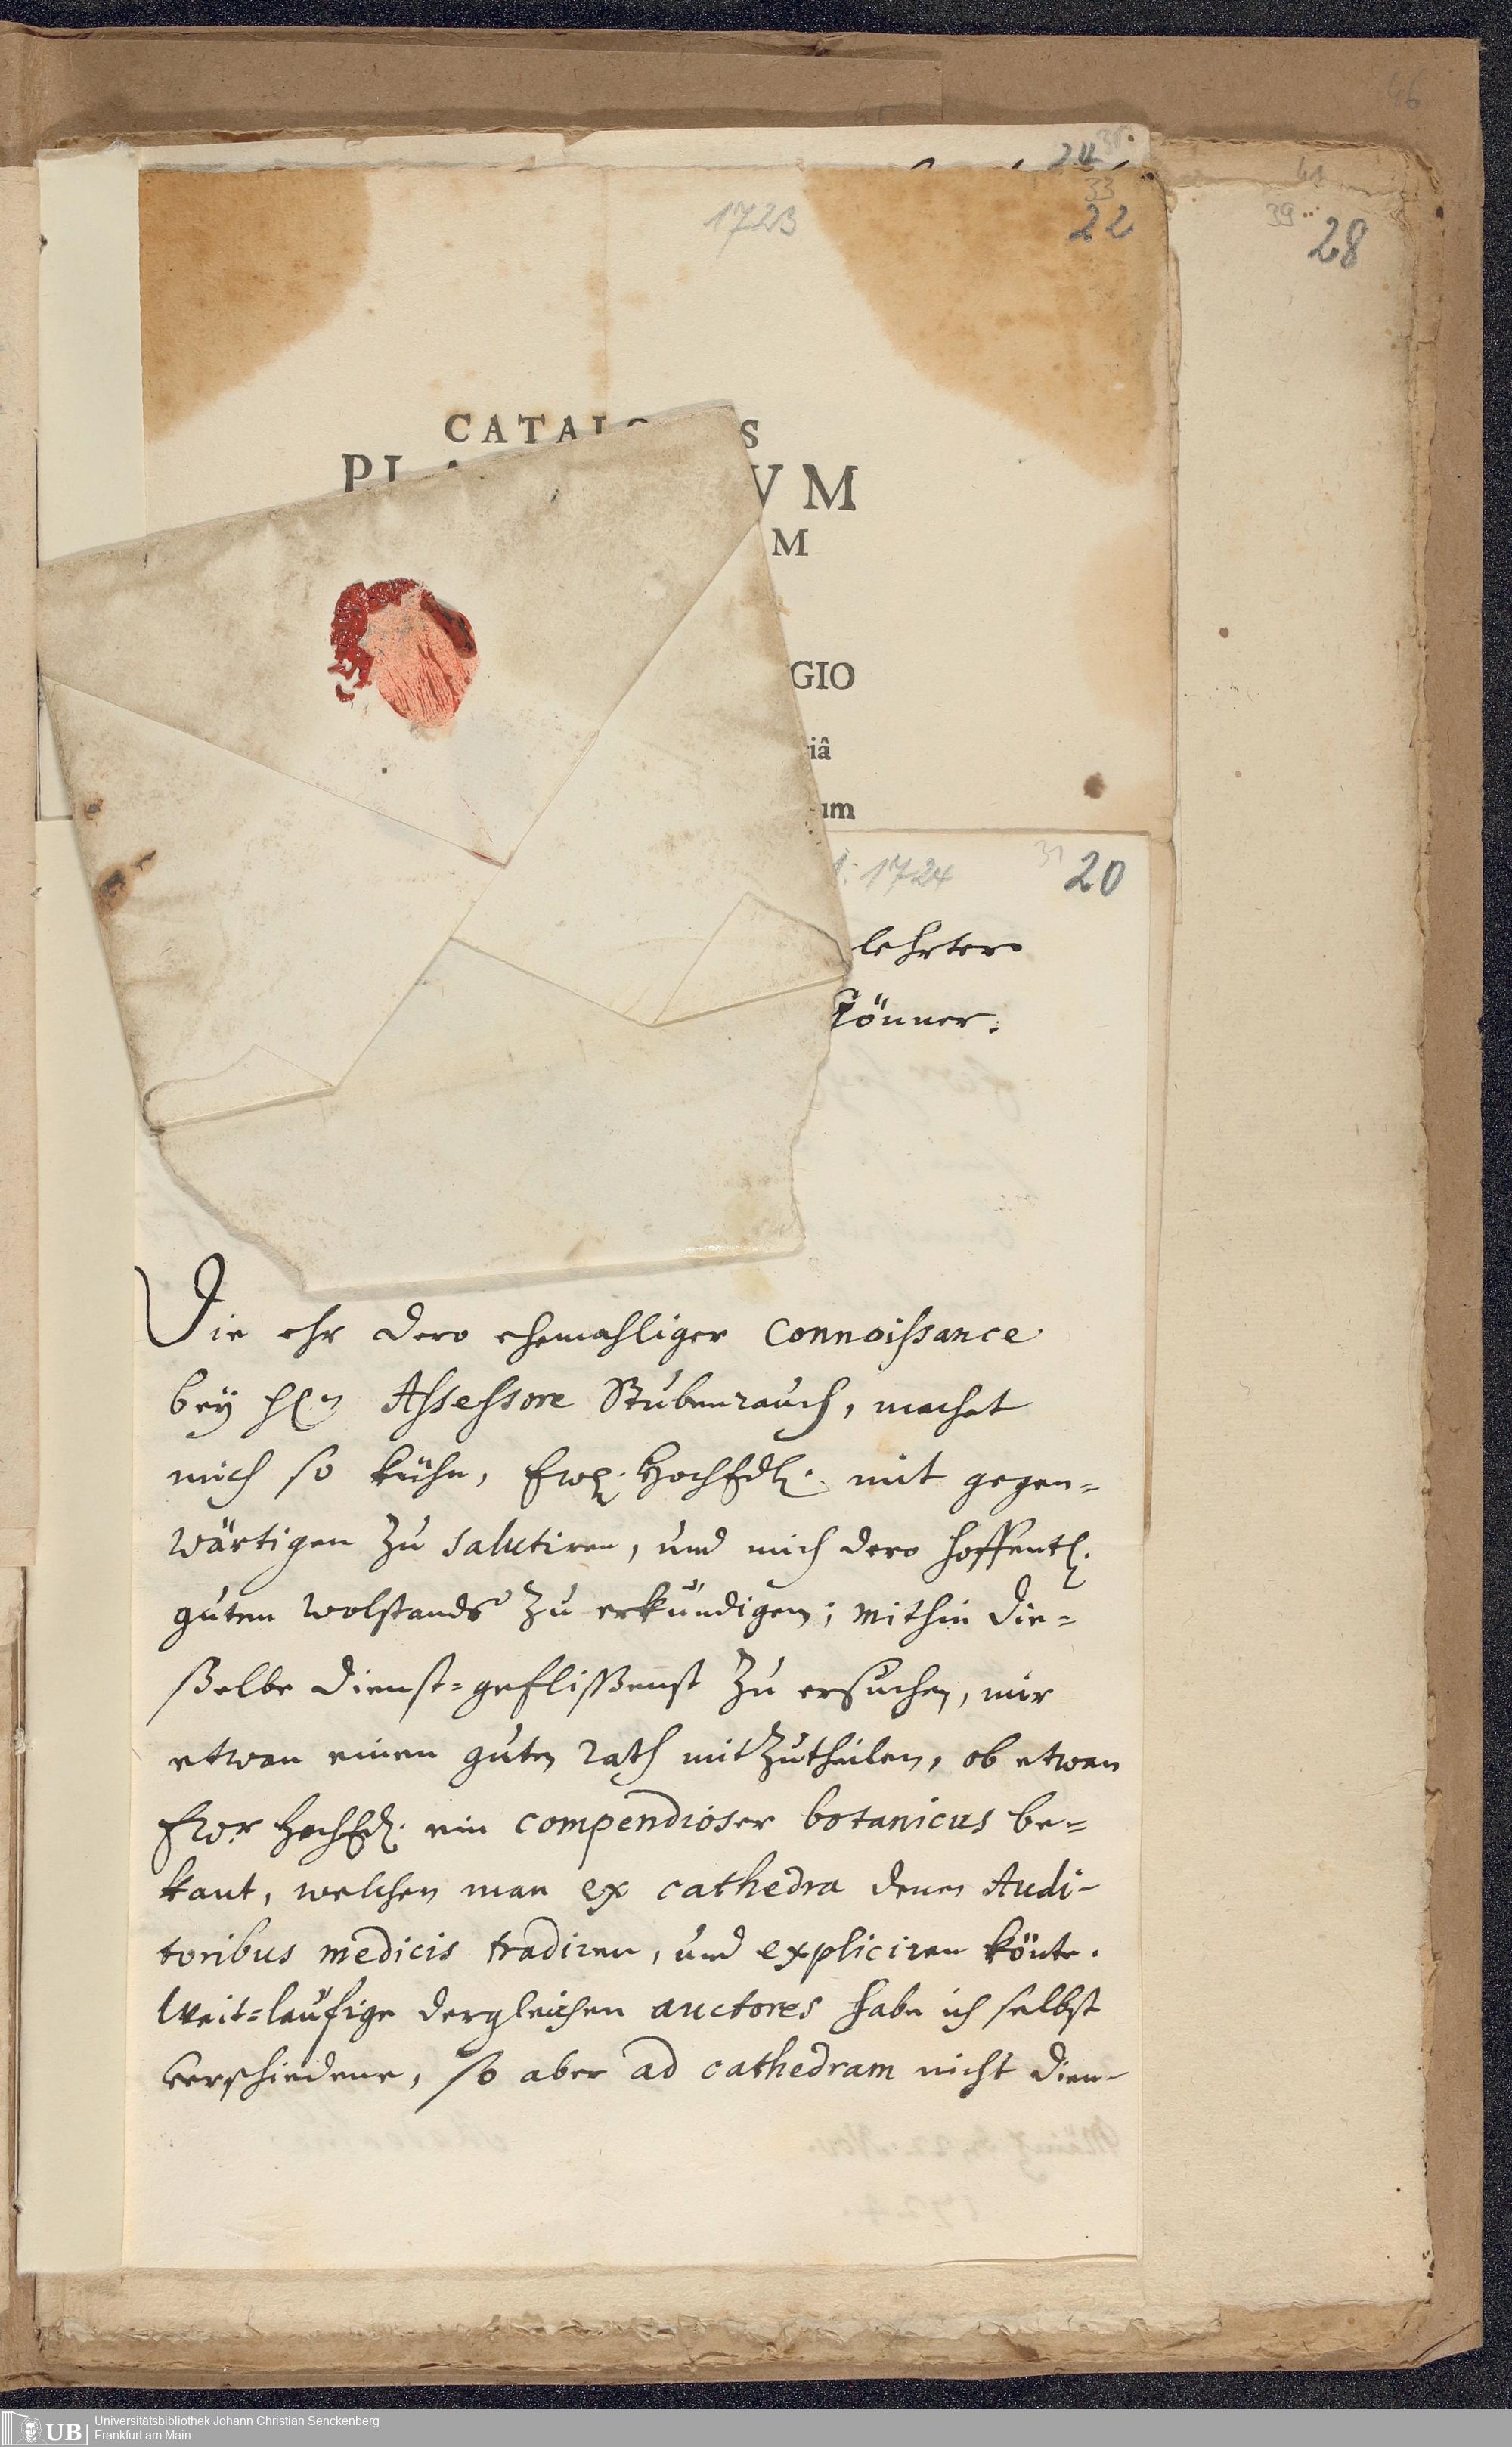 46
24
61
33
22
39
28
1723
CATAL S
PL VM
M
GIO
iâ
um
1724
31
20
lehrter
Gönner.
Die ehr dero ehemahliger Connoissance
bey Hln Assessore Stubenrauch, machet
mich so kühn, Ew. HochEdl. mit gegen=
wärtigen zu salutiren, und mich dero hoffentl.
guten wolstands zu erkündigen; mithin die=
ßelbe dienst=geflißenst zu ersuchen, mir
etwan einen guten rath mitzutheilen, ob etwan
Ewr HochEdl. ein compendioser botanicus be=
kant, welchen man ex cathedra denen Audi-
toribus medicis tradiren, und expliciren könte.
Weit=läufige dergleichen auctores habe ich selbst
verschiedene, so aber ad cathedram nicht dien-
UB
Universitätsbibliothek Johann Christian Senckenberg
Frankfurt am Main